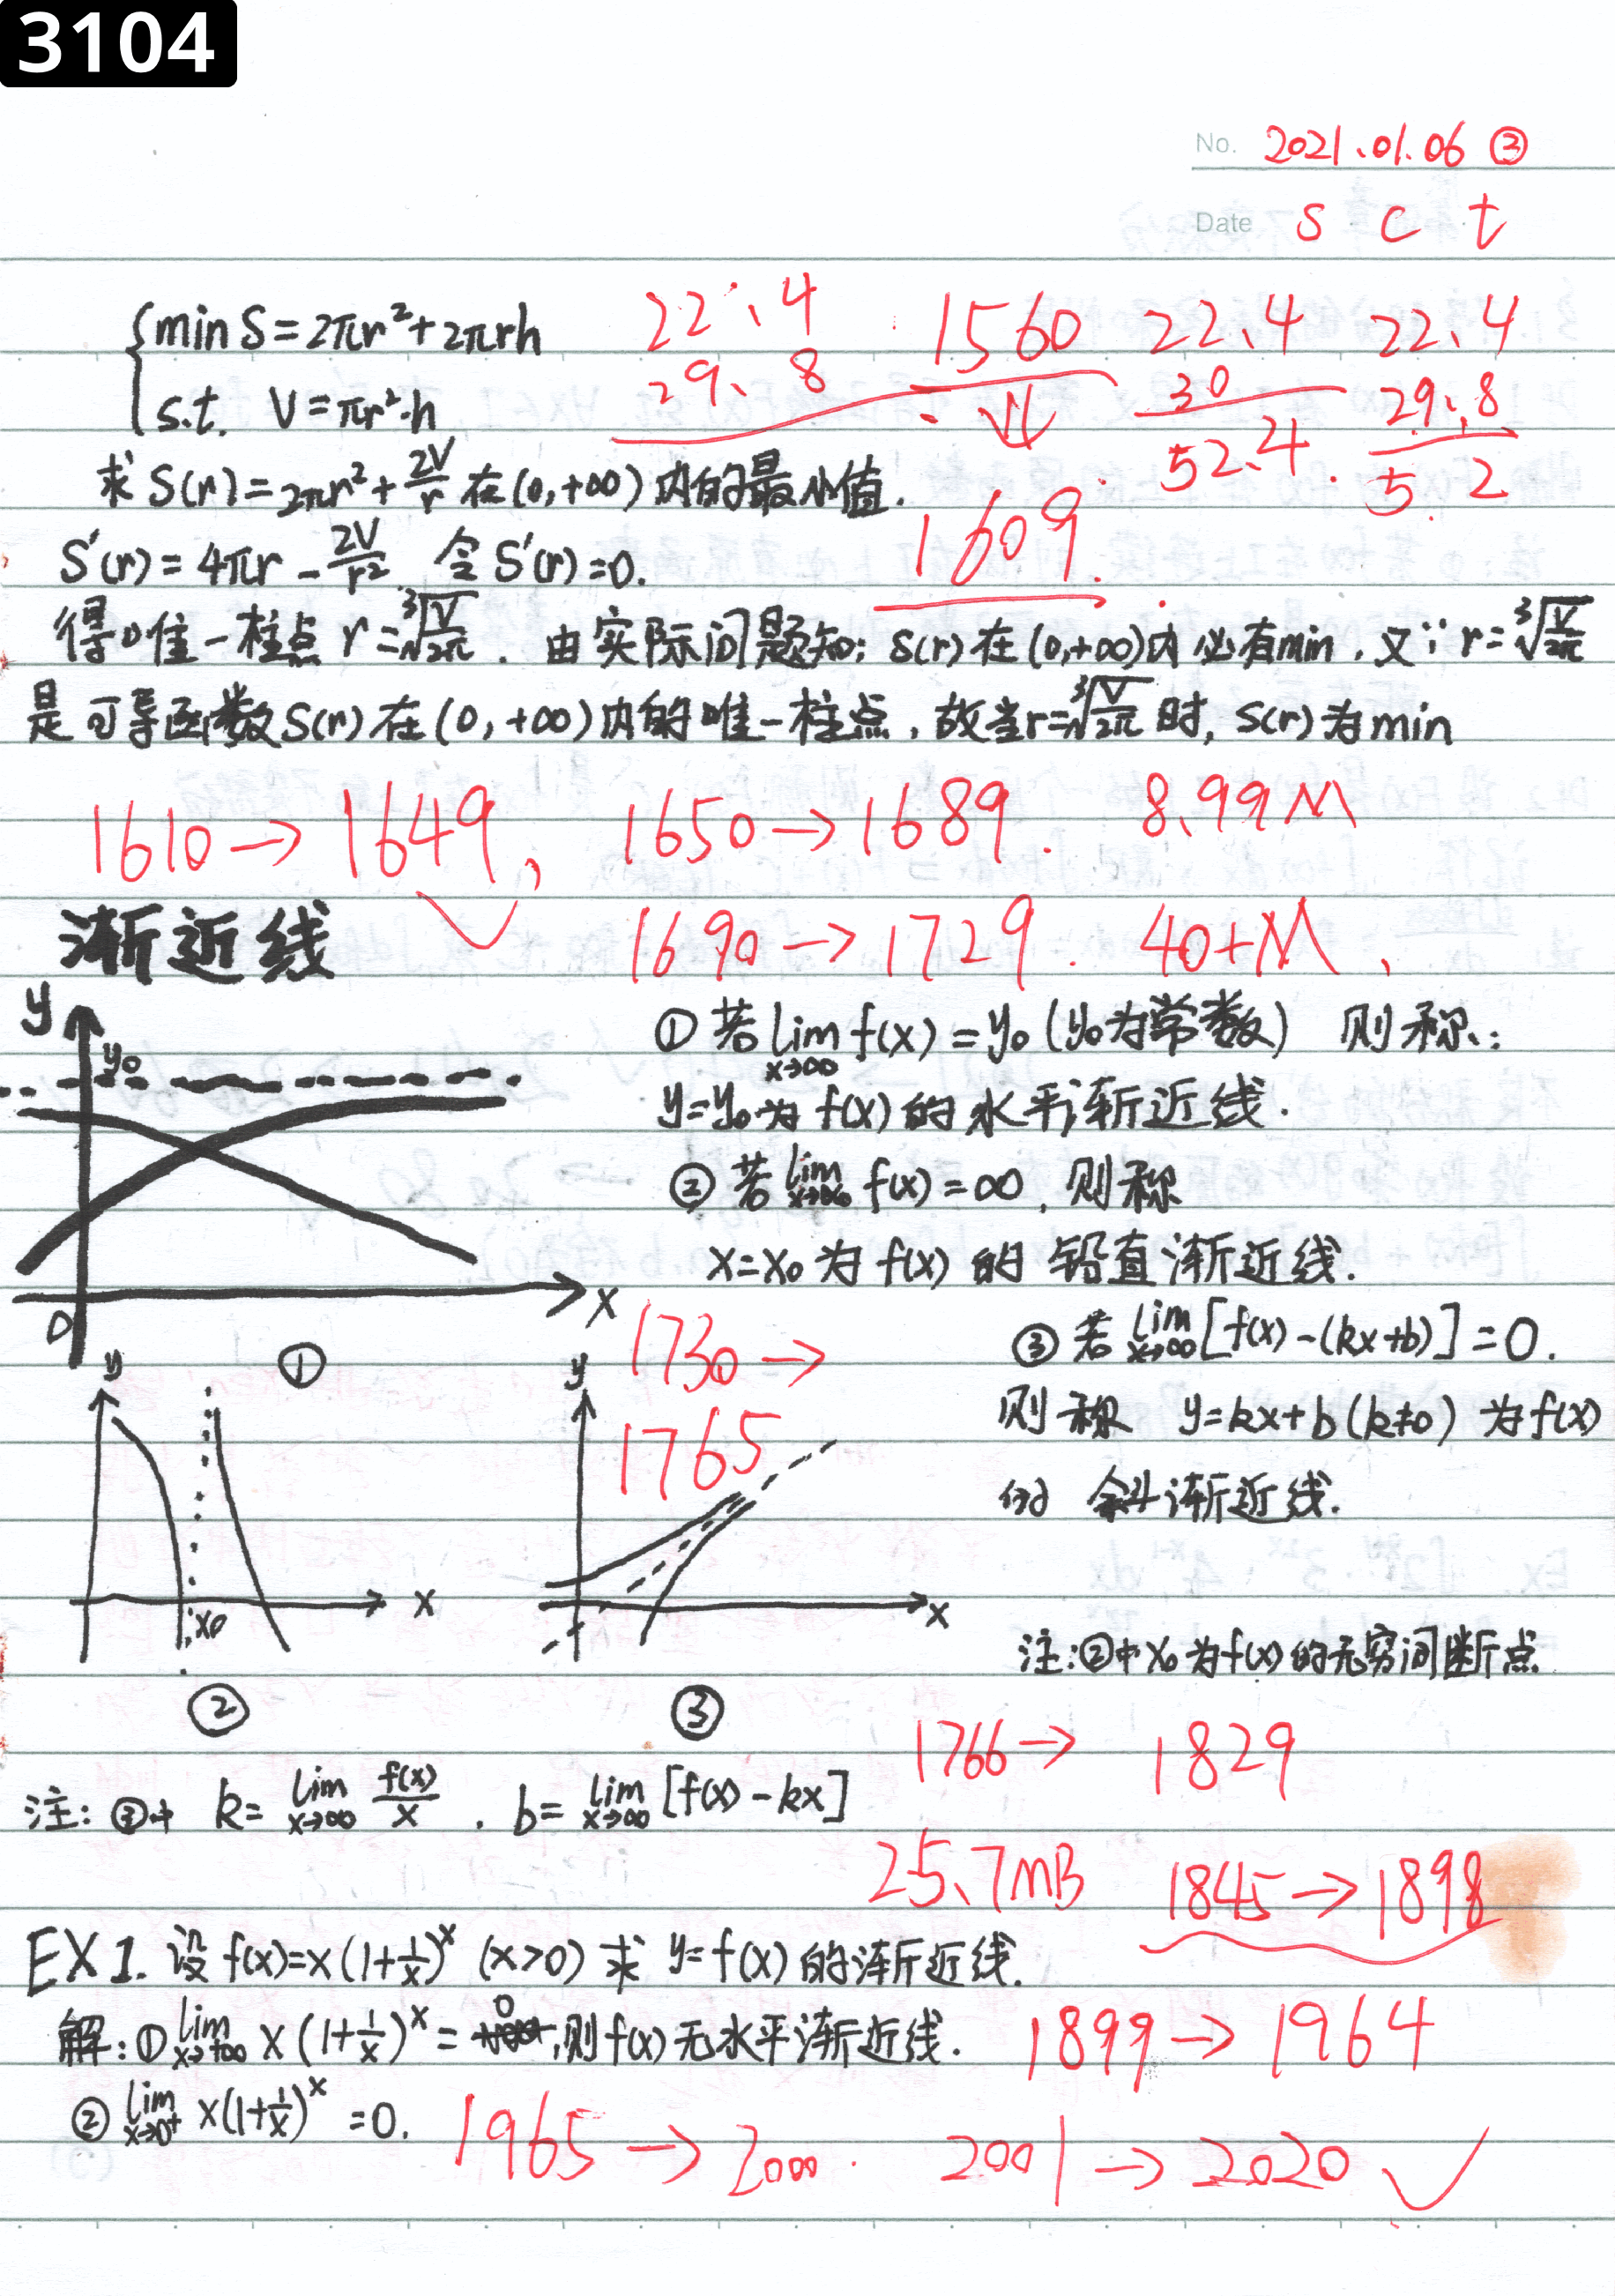 3104
No. 2021.01.06 ③
Date S C t
22.4 1560 22.4 22.4
29.8 ↓ 30 29.8
52.4 5 2
1609.
{ min S=2πr²+2πrh
s.t. V=πr²·h
求 S(r)=2πr²+2V/r 在(0,+∞)内的最小值.
S'(r)=4πr-2V/r² 令S'(r)=0.
得唯一柱点 r=∛(V/2π). 由实际问题知: S(r)在(0,+∞)内必有min, 又∵r=∛(V/2π)
是可导函数S(r)在(0,+∞)内的唯一柱点, 故当r=∛(V/2π)时, S(r)为min
1610→1649, 1650→1689. 8.99M
1690→1729. 40+M.
渐近线
y
y₀
0
x
①
①若lim x→∞ f(x)=y₀(y₀为常数) 则称:
y=y₀为f(x)的水平渐近线.
②若lim x→x₀ f(x)=∞, 则称
x=x₀为f(x)的铅直渐近线.
1730→
1765
③若lim x→∞ [f(x)-(kx+b)]=0.
则称 y=kx+b(k≠0)为f(x)
的 斜渐近线.
y
x₀
x
②
y
x
③
注:②中x₀为f(x)的无穷间断点
1766→1829
注:③中 k=lim x→∞ f(x)/x, b=lim x→∞ [f(x)-kx]
25.7MB 1845→1898
EX1. 设f(x)=x(1+1/x)^x (x>0)求y=f(x)的渐近线.
解:①lim x→+∞ x(1+1/x)^x= ,则f(x)无水平渐近线.
1899→1964
②lim x→0⁺ x(1+1/x)^x=0.
1965→2000. 2001→2020 ✓